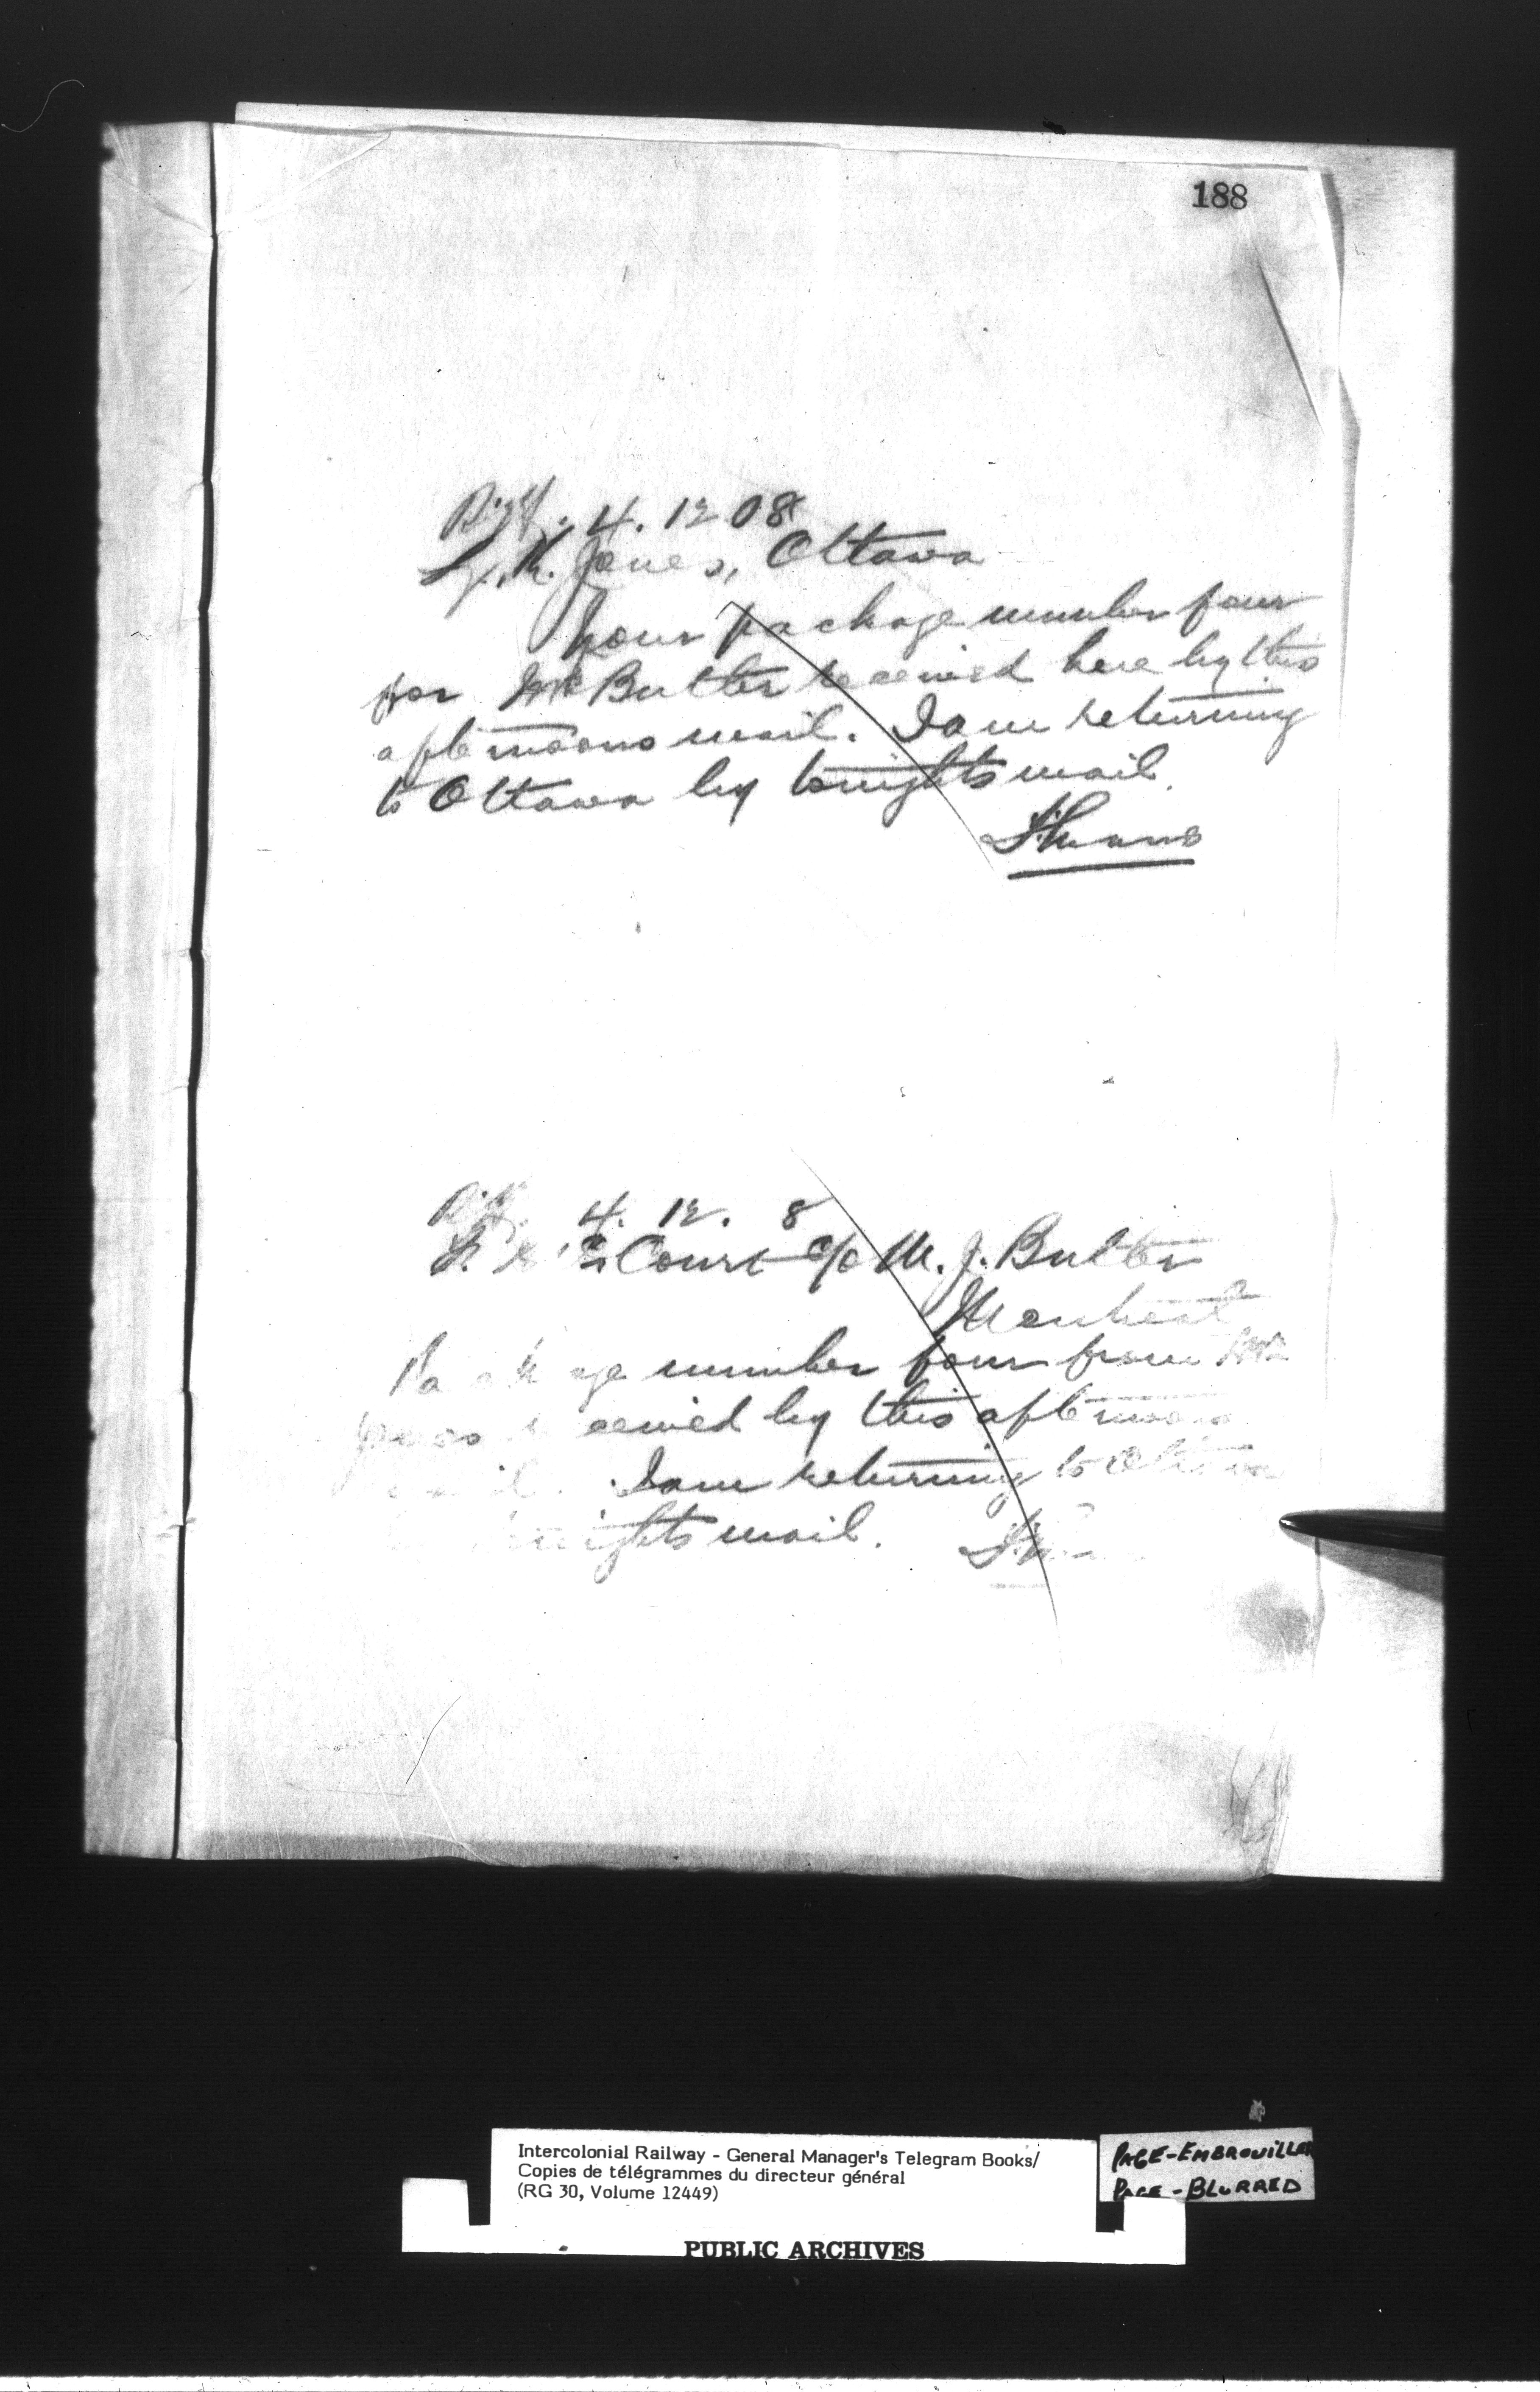 188
4. 12 08
L. K. Jones, Ottawa
Your package number four
for Mr Butler received here by this
afternoons mail. I am returning
to Ottawa by tonights mail.
4. 12. 8
Court c/o M. J. Butler
Montreal
Package number four from Mr
Jones received by this afternoons
mail. I am returning to Ottawa
nights mail.
Intercolonial Railway - General Manager's Telegram Books/
Copies de télégrammes du directeur général
(RG 30, Volume 12449)
PUBLIC ARCHIVES
PAGE-EMBROUILLEE
PAGE-BLURRED